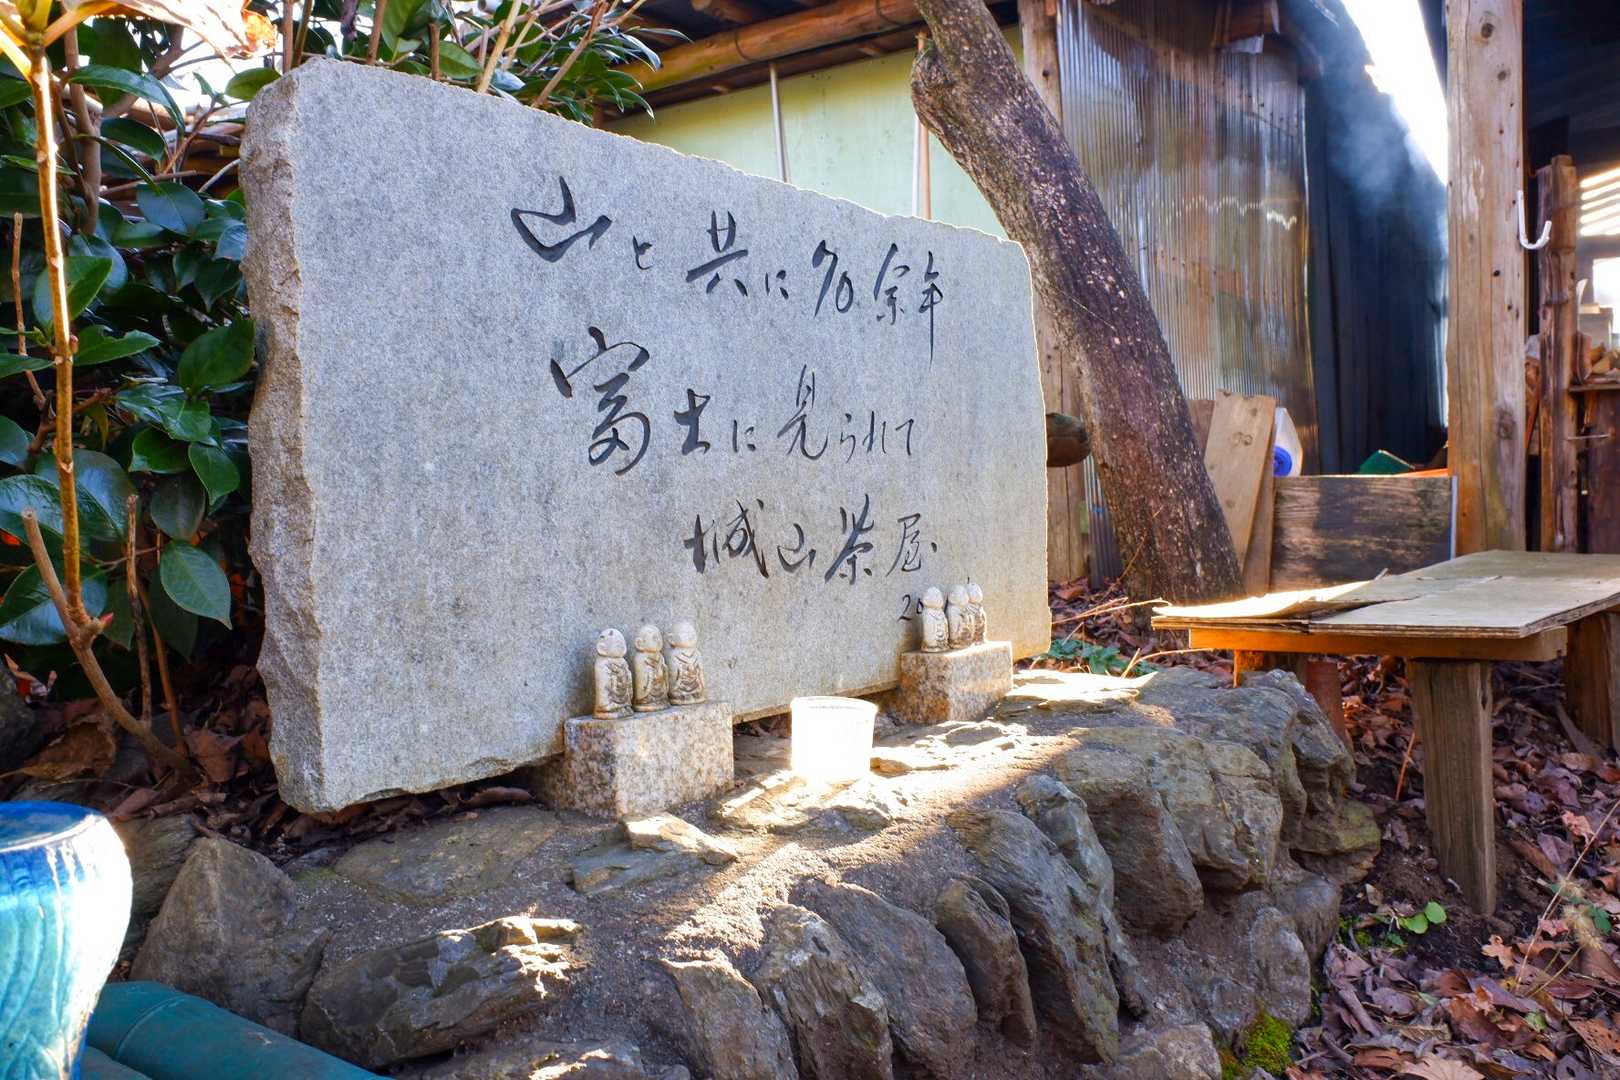 山と共に70余年
富士に見られて
城山茶屋